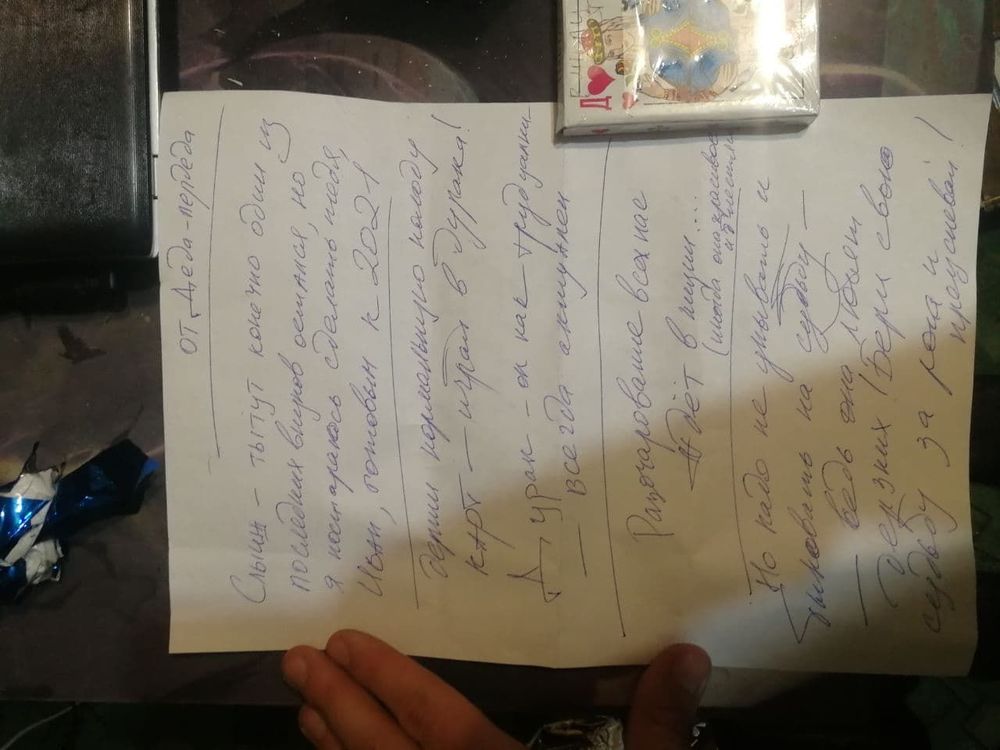 от Деда-пердеда
Слыш – ты тут конечно один из
последних внуков остался, но
я постараюсь сделать тебя,
Иван, готовым к 2021
держи нормальную колоду
карт – играй в дурака!
Дурак – он как
— всегда актуален
Разочарование всех нас
ждёт в
(иногда она красивая
Но надо не унывать и
на судьбу –
— ведь она любит
дерзких! Бери свою
судьбу за рога и
преуспевай!
Д